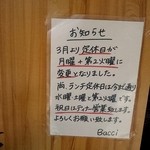 お知らせ
3月より定休日が
月曜+第2火曜に
変更となりました。
尚、ランチ定休日は今まで通り
水曜、土曜と第2火曜です。
祝日はディナー営業致します。
よろしくお願い致します。
Bacci